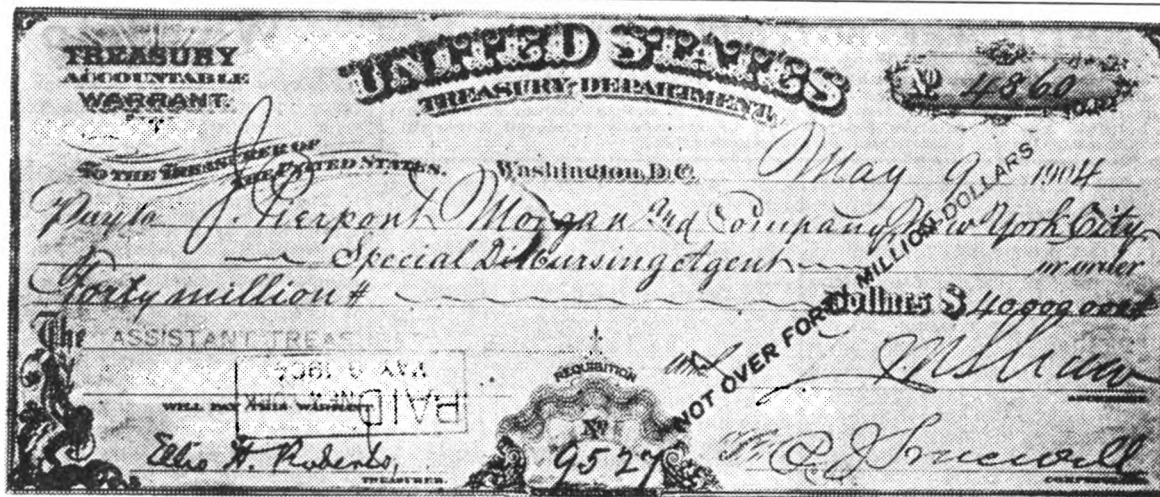 TREASURY
ACCOUNTABLE
WARRANT.
UNITED STATES
TREASURY DEPARTMENT
No 4860
TO THE TREASURER OF
THE UNITED STATES.
Washington, D.C. May 9 1904
Pay to J. Pierpont Morgan and Company, New York City
Special Disbursing Agent or order
Forty million # dollars $ 40,000,000 #
NOT OVER FORTY MILLION DOLLARS
The ASSISTANT TREAS
PAID
MAY 9 1904
NEW YORK
WILL PAY THIS WARRANT
Ellis H. Roberts,
TREASURER.
REQUISITION
No
9527